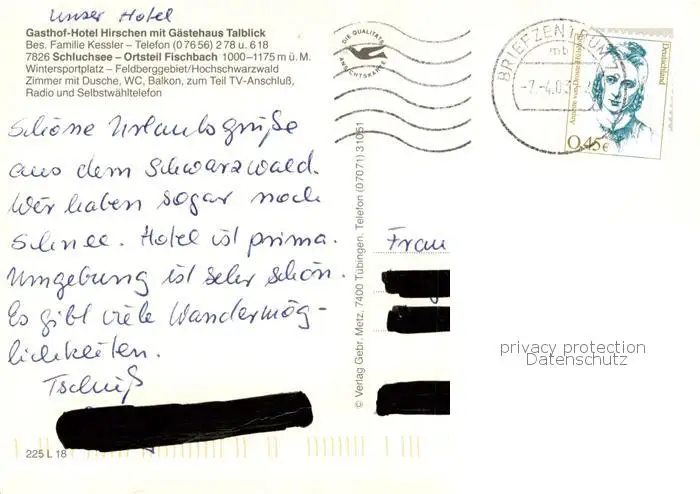 Unser Hotel
Gasthof-Hotel Hirschen mit Gästehaus Talblick
Bes. Familie Kessler – Telefon (0 76 56) 2 78 u. 6 18
7826 Schluchsee – Ortsteil Fischbach 1000–1175 m ü. M.
Wintersportplatz – Feldberggebiet/Hochschwarzwald
Zimmer mit Dusche, WC, Balkon, zum Teil TV-Anschluß,
Radio und Selbstwähltelefon
Schöne Urlaubsgrüße
aus dem Schwarzwald.
Wir haben sogar noch
Schnee. Hotel ist prima.
Umgebung ist sehr schön.
Es gibt viele Wandermög-
lichkeiten.
Tschüß
225 L 18
DIE QUALITÄTS
ANSICHTSKARTE
© Verlag Gebr. Metz, 7400 Tübingen, Telefon (07071) 31051
BRIEFZENTRUM
mb
-7.-4.03
Deutschland
0,45€
Frau
privacy protection
Datenschutz